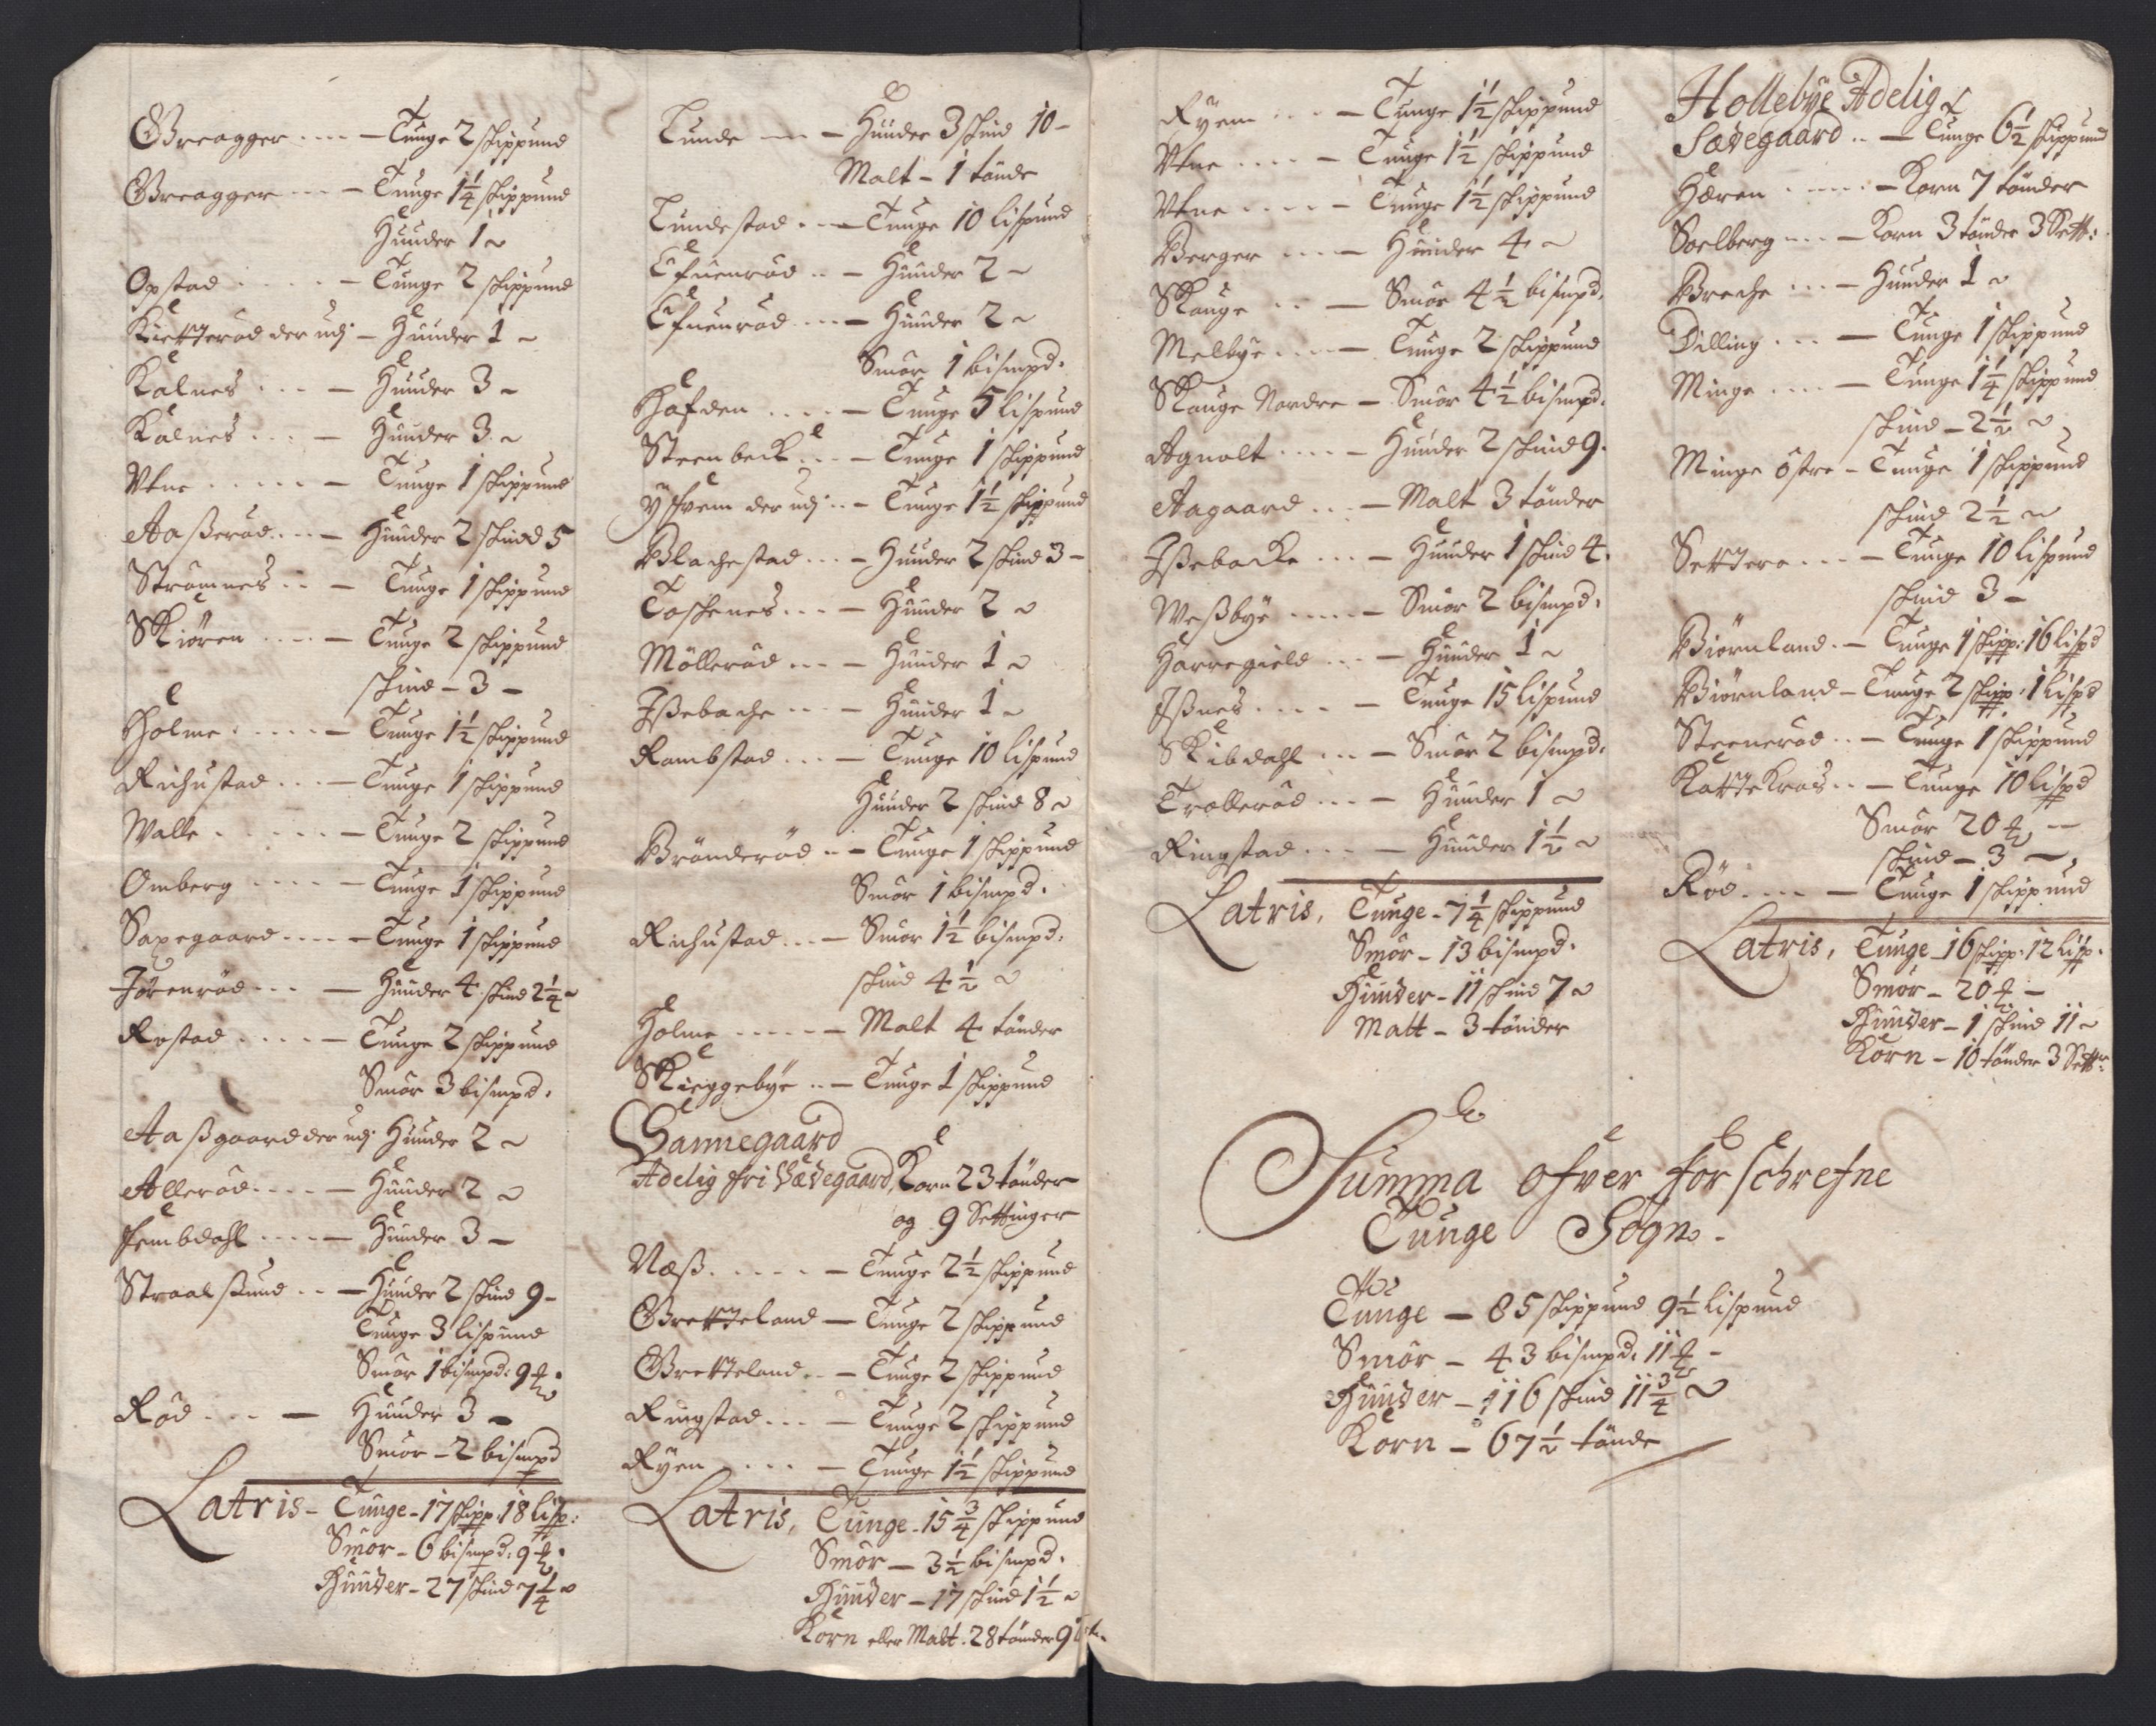 Greagger .... — Tunge 2 skippund
Greagger .... — Tunge 1 1/4 skippund
Huuder 1 ~
Opstad ..... — Tunge 2 skippund
Kietterød der udj — Huuder 1 ~
Kalnes .... — Huuder 3 ~
Kalnes .... — Huuder 3 ~
Utne ..... — Tunge 1 skippund
Aaßerød .... — Huuder 2 skind 5
Strømnes ... — Tunge 1 skippund
Skiøren .... — Tunge 2 skippund
skind — 3 —
Holme ..... — Tunge 1 1/2 skippund
Richustad ... — Tunge 1 skippund
Walle ..... — Tunge 2 skippund
Omberg .... — Tunge 1 skippund
Saxegaard .... — Tunge 1 skippund
Jørenrød ... — Huuder 4 skind 2 1/4 ~
Røstad .... — Tunge 2 skippund
Smör 3 bismpd:
Aaßgaard der udj Huuder 2 ~
Allerød .... — Huuder 2 ~
Fembdahl .... — Huuder 3 —
Straalsund .. — Huuder 2 skind 9 —
Tunge 3 lispund
Smör 1 bismpd: 9 ℔
Rød .... — Huuder 3 —
Smör — 2 bismpd
Latris — Tunge — 17 skipp: 18 lisp:
Smör — 6 bismpd: 9 ℔
Huuder — 27 skind 7 1/4 ~
Lunde — — Huuder 3 skind 10 —
Malt — 1 tønde
Lundestad .. — Tunge 10 lispund
Efuenrød .. — Huuder 2 ~
Efuenrød ... — Huuder 2 ~
Smör 1 bismpd:
Hafden .... — Tunge 5 lispund
Steenbeck ... — Tunge 1 skippund
Ysfrem der udj .. — Tunge 1 1/2 skippund
Blachestad ... — Huuder 2 skind 3 —
Toskenes ... — Huuder 2 ~
Møllerød ... — Huuder 1 ~
Ißebache ... — Huuder 1 ~
Rambstad ... — Tunge 10 lispund
Huuder 2 skind 8 ~
Brønderød .. — Tunge 1 skippund
Smör 1 bismpd:
Richustad ... — Smör 1 1/2 bismpd:
skind 4 1/2 ~
Holme ..... — Malt 4 tønder
Skieggebye .. — Tunge 1 skippund
Sannegaard
Adelig fri Sædegaard, Korn 23 tønder
og 9 Settinger
Næß ..... — Tunge 2 1/2 skippund
Gretteland — Tunge 2 skippund
Gretteland .. — Tunge 2 skippund
Ringstad ... — Tunge 2 skippund
Ryen .... — Tunge 1 1/2 skippund
Latris, Tunge — 15 3/4 skippund
Smör — 3 1/2 bismpd:
Huuder — 17 skind 1 1/2 ~
Korn eller Malt . 28 tønder 9
Ryen ... — Tunge 1 1/2 skippund
Utne .... — Tunge 1 1/2 skippund
Utne .... — Tunge 1 1/2 skippund
Berger ... — Huuder 4 ~
Skauge .. — Smör 4 1/2 bismpd:
Melbye .... — Tunge 2 skippund
Skauge Nordre — Smör 4 1/2 bismpd:
Agnalt .... — Huuder 2 skind 9.
Aagaard ... — Malt 3 tønder
Ißebacke ... — Huuder 1 skind 4.
Weßbye .... — Smör 2 bismpd:
Harregield ... — Huuder 1 ~
Ißnes .... — Tunge 15 lispund
Skibdahl ... — Smör 2 bismpd:
Trollerød ... — Huuder 1 ~
Ringstad .... — Huuder 1 1/2 ~
Latris, Tunge — 7 1/4 skippund
Smör — 13 bismpd:
Huuder — 11 skind 7 ~
Malt — 3 tønder
Hollebye Adelig
Sædegaard .. — Tunge 6 1/2 skippund
Hæren ..... — Korn 7 tønder
Soelberg .... — Korn 3 tønder 3 Sett:
Breche .... — Huuder 1 ~
Dilling .... — Tunge 1 skippund
Minge .... — Tunge 1 1/4 skippund
skind — 2 1/2 ~
Minge østre — Tunge 1 skippund
skind 2 1/2 ~
Settere .... — Tunge 10 lispund
skind 3 —
Biørnland .. — Tunge 1 skipp: 16 lispd
Biørnland — Tunge 2 skipp: 1 lispd
Steenerød .. — Tunge 1 skippund
Kattekras .. — Tunge 10 lispd
Smör 20 ℔ —
skind — 3 —
Rød .... — Tunge 1 skippund
Latris, Tunge — 16 skipp: 12 lisp:
Smör — 20 ℔ —
Huuder — 1 skind 11 ~
Korn — 10 tønder 3 Settr:
Summa ofver for schrefne
Tunge Sogn.
Tunge — 85 skippund 9 1/2 lispund
Smör — 43 bismpd: 11 ℔ —
Huuder — 116 skind 11 3/4 ~
Korn — 67 1/2 tønde